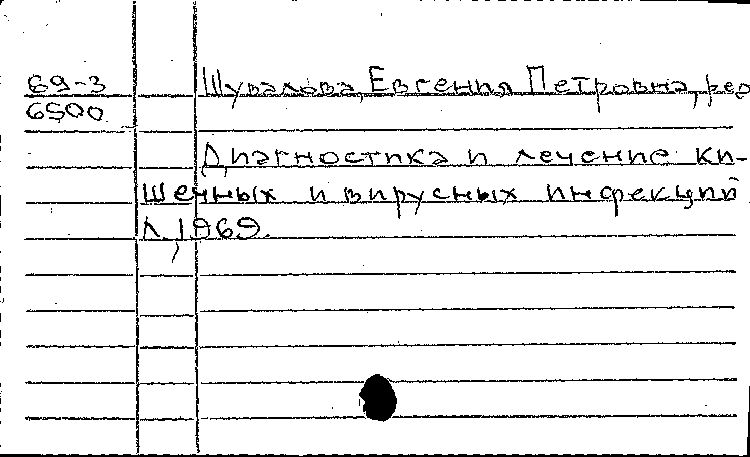 69-3
6500
Шувалова, Евгения Петровна, ред
Диагностика и лечение ки-
шечных и вирусных инфекций
Л, 1969.